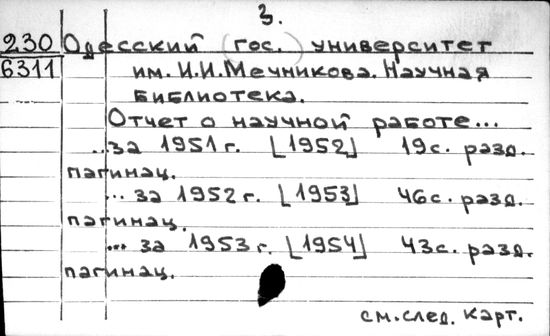 3.
230 Одесский (гос.) университет
6311 им. И.И.Мечникова. Научная
библиотека.
Отчет о научной работе...
...за 1951 г. [1952] 19с. разд.
пагинац.
... за 1952 г. [1953] 46с. разд.
пагинац.
... за 1953 г. [1954] 43с. разд.
пагинац.
см. след. карт.